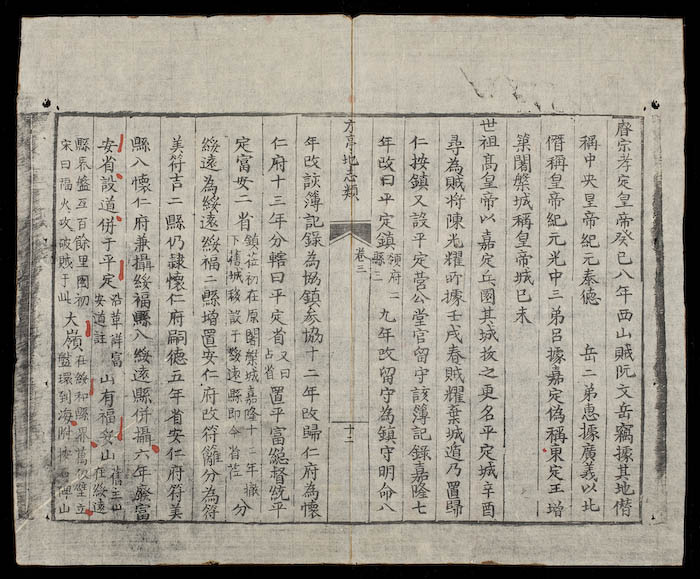 睿宗孝定皇帝癸巳八年西山賊阮文岳竊據其地僭
稱中央皇帝紀元泰德 岳二弟惠據廣義以北
僭稱皇帝紀元光中三弟呂據嘉定偽稱東定王增
築闍槃城稱皇帝城己未
世祖高皇帝以嘉定兵圍其城拔之更名平定城辛酉
尋為賊將陳光耀所據壬戌春賊耀棄城遁乃置歸
仁按鎮又設平定營公堂官留守該簿記錄嘉隆七
年改曰平定鎮領府一縣三九年改留守為鎮守明命八
方亭地志類 卷三 十二
年改該簿記錄為協鎮參協十二年改歸仁府為懷
仁府十三年分轄曰平定省又曰占省置平富總督統平
定富安二省鎮莅初在原闍槃城嘉隆十二年撤下舊城移設于綏遠縣即今省莅分
綏遠為綏遠綏福二縣增置安仁府改符離分為符
美符吉二縣仍隸懷仁府嗣德五年省安仁府符美
縣八懷仁府兼攝綏福縣八綏遠縣併攝六年廢富
安省設道併于平定沿革詳富安道註山有福安山舊主山在綏遠
縣界盤亙百餘里國初宋曰福火攻破賊于此大嶺在綏和縣界萬仞壁立盤環到海附石碑山